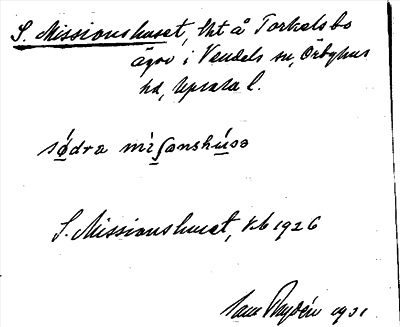 S. Missionshuset, lht å Torkelsbo
ägor i Vendels sn, Örbyhus
hd, Uppsala l.
södra miʃonshúsə
S. Missionshuset, kb 1926
Rydén 1931